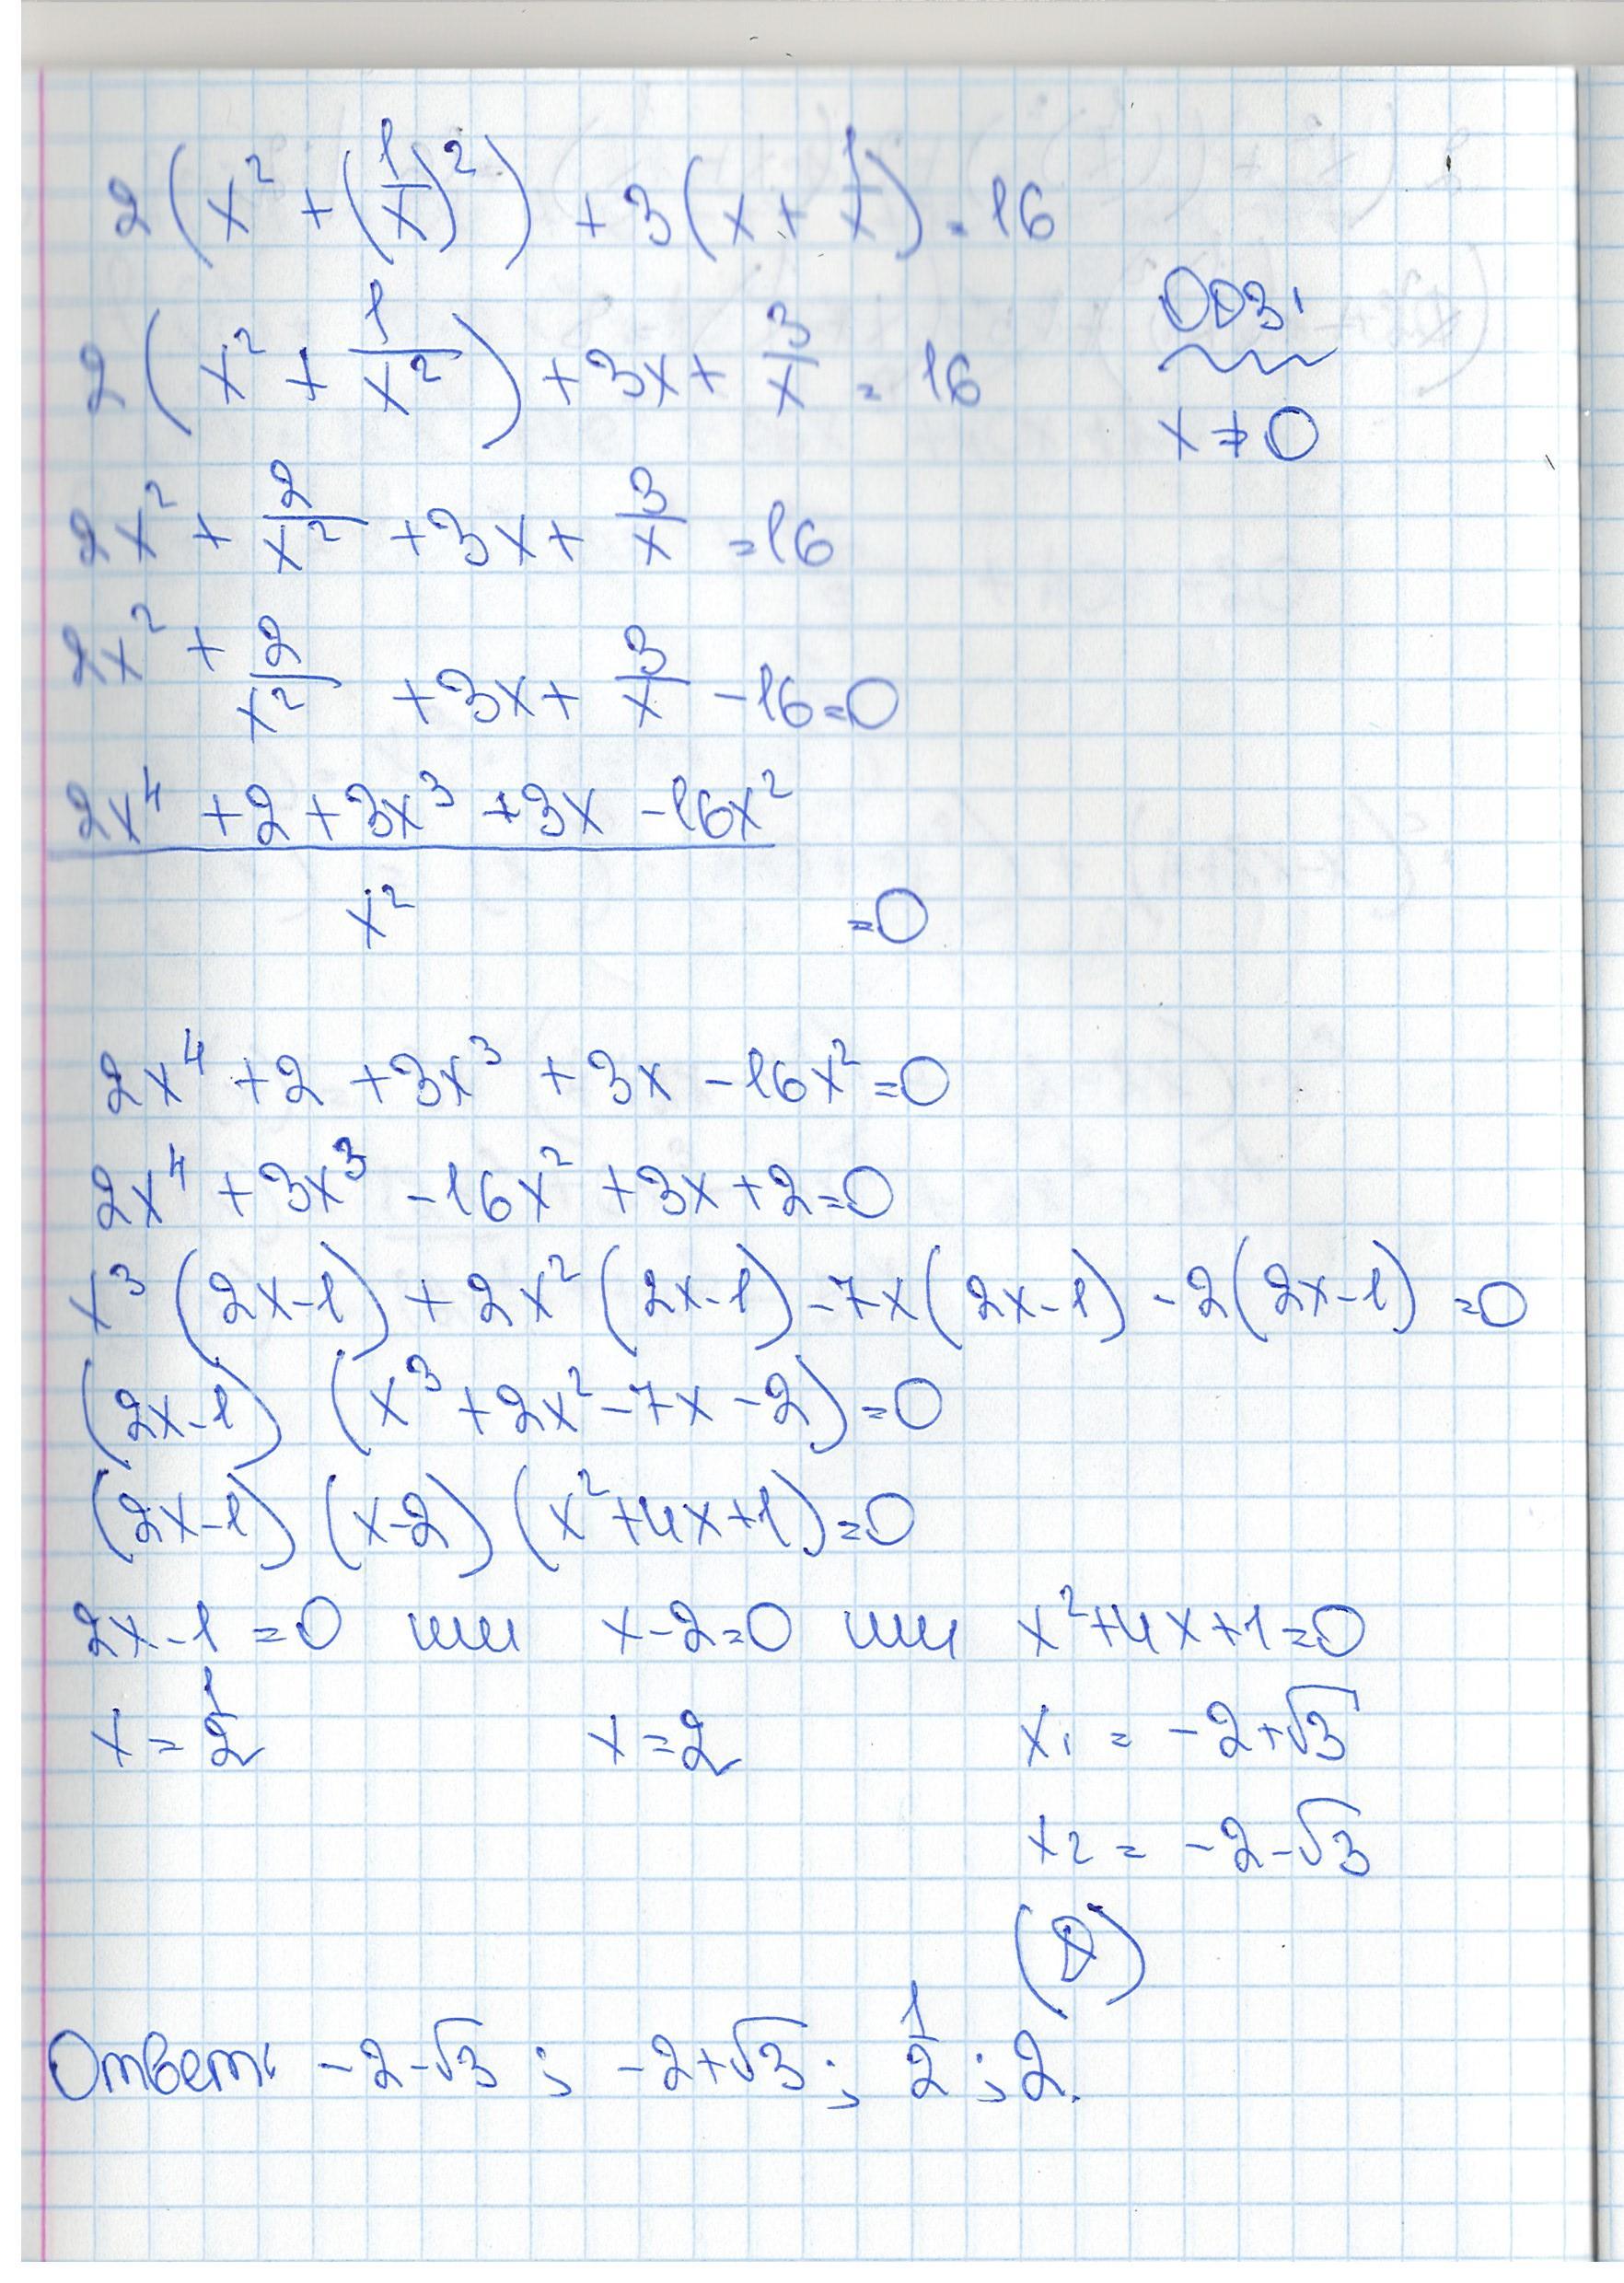 2(x² + (1/x)²) + 3(x + 1/x) = 16
2(x² + 1/x²) + 3x + 3/x = 16
ОДЗ:
x ≠ 0
2x² + 2/x² + 3x + 3/x = 16
2x² + 2/x² + 3x + 3/x - 16 = 0
(2x⁴ + 2 + 3x³ + 3x - 16x²)/x² = 0
2x⁴ + 2 + 3x³ + 3x - 16x² = 0
2x⁴ + 3x³ - 16x² + 3x + 2 = 0
x³(2x-1) + 2x²(2x-1) - 7x(2x-1) - 2(2x-1) = 0
(2x-1) (x³ + 2x² - 7x - 2) = 0
(2x-1) (x-2) (x² + 4x + 1) = 0
2x - 1 = 0 или x - 2 = 0 или x² + 4x + 1 = 0
x = 1/2 x = 2 x₁ = -2+√3
x₂ = -2-√3
Ответ: -2-√3 ; -2+√3 ; 1/2 ; 2.